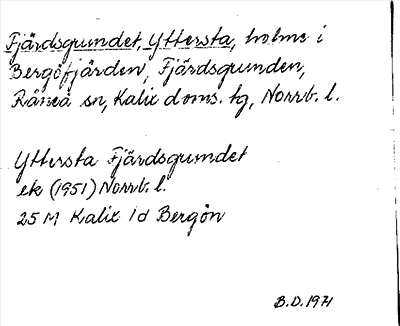 Fjärdsgrundet, Yttersta, holme i
Bergöfjärden, Fjärdsgrunden,
Råneå sn, Kalix doms. tg, Norrb. l.
Yttersta Fjärdsgrundet
ek (1951) Norrb. l.
25 M Kalix 1d Bergön
B.D. 1971